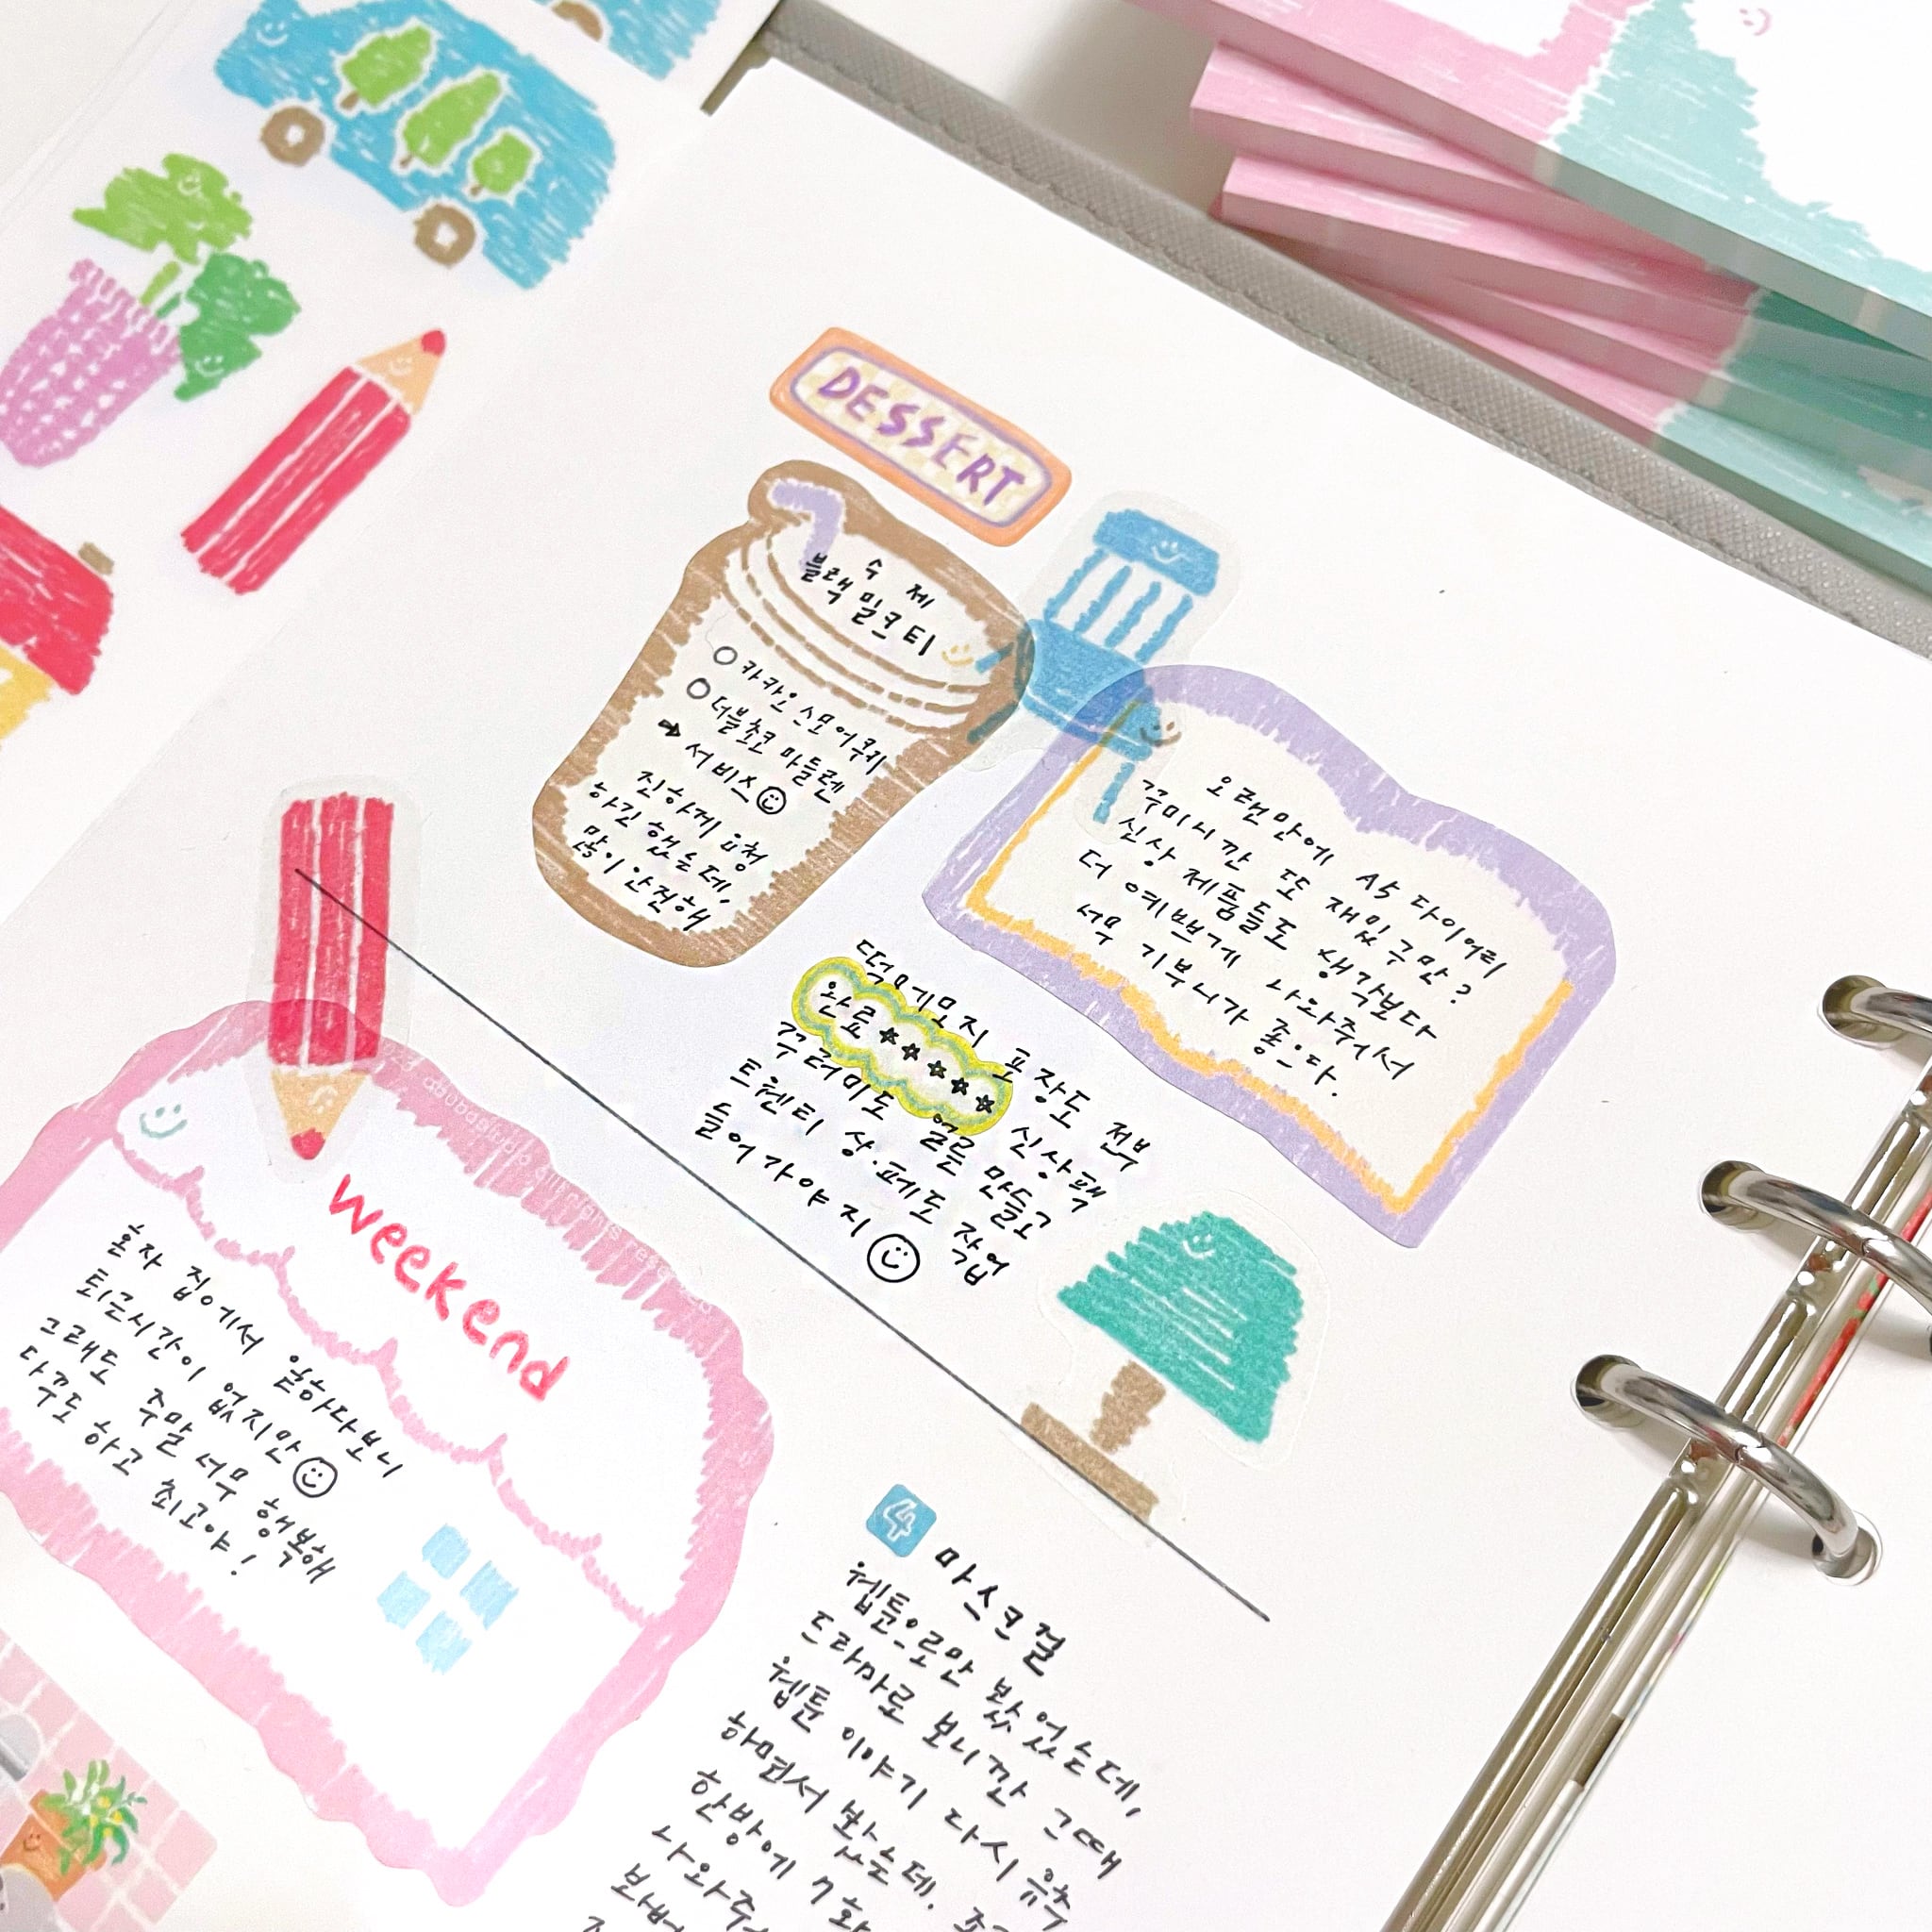 DESSERT
수제
블랙밀크티
카카오스모어쿠키
더블초코 마들렌
→ 서비스
진하게 요청
하긴 했는데,
많이 안진해,
오랜만에 A5 다이어리
꾸미니깐 또 재밌구만?
신상 제품들도 생각보다
더 예쁘게 나와줘서
너무 기부니가 좋은다.
떡메모지 포장도 전부
완료 ☆☆☆☆☆ 신상팩
꾸러미도 얼른 만들고
트웬티 상·페도 작업
들어가야지
weekend
혼자 집에서 일하다보니
퇴근시간이 없지만
그래도 주말 너무 행복해
다꾸도 하고 최고야!
4 마스크걸
웹툰으로만 봤었는데,
드라마로 보니깐 그때
웹툰 이야기 다시 음축
하면서 봤는데.
한방에 7화
나와주